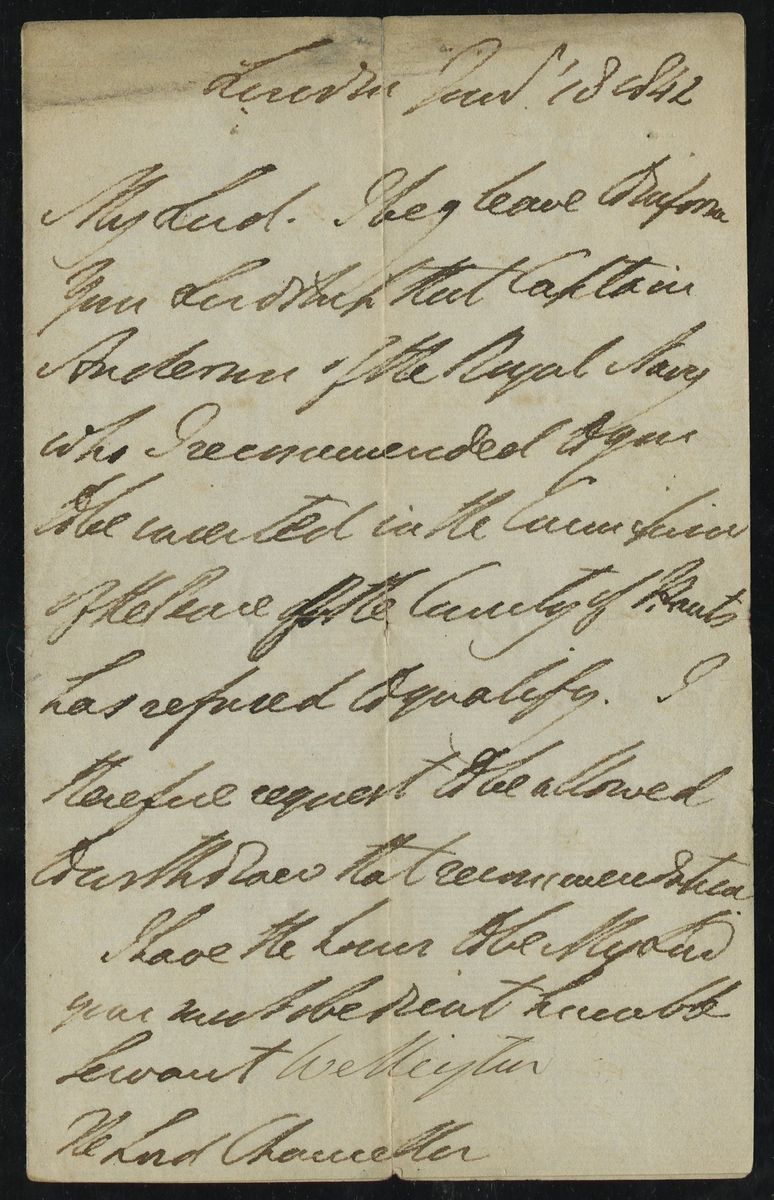 London Jan.y 18 1842
My Lord. I beg leave to inform
Your Lordship that Captain
Anderson of the Royal Navy
who I recommended to you
to be inserted in the Commission
of the Peace of the County of Hants
has refused to qualify. I
therefore request to be allowed
to withdraw that recommendation
I have the honor to be My Lord
your most obedient humble
Servant Wellington
The Lord Chancellor